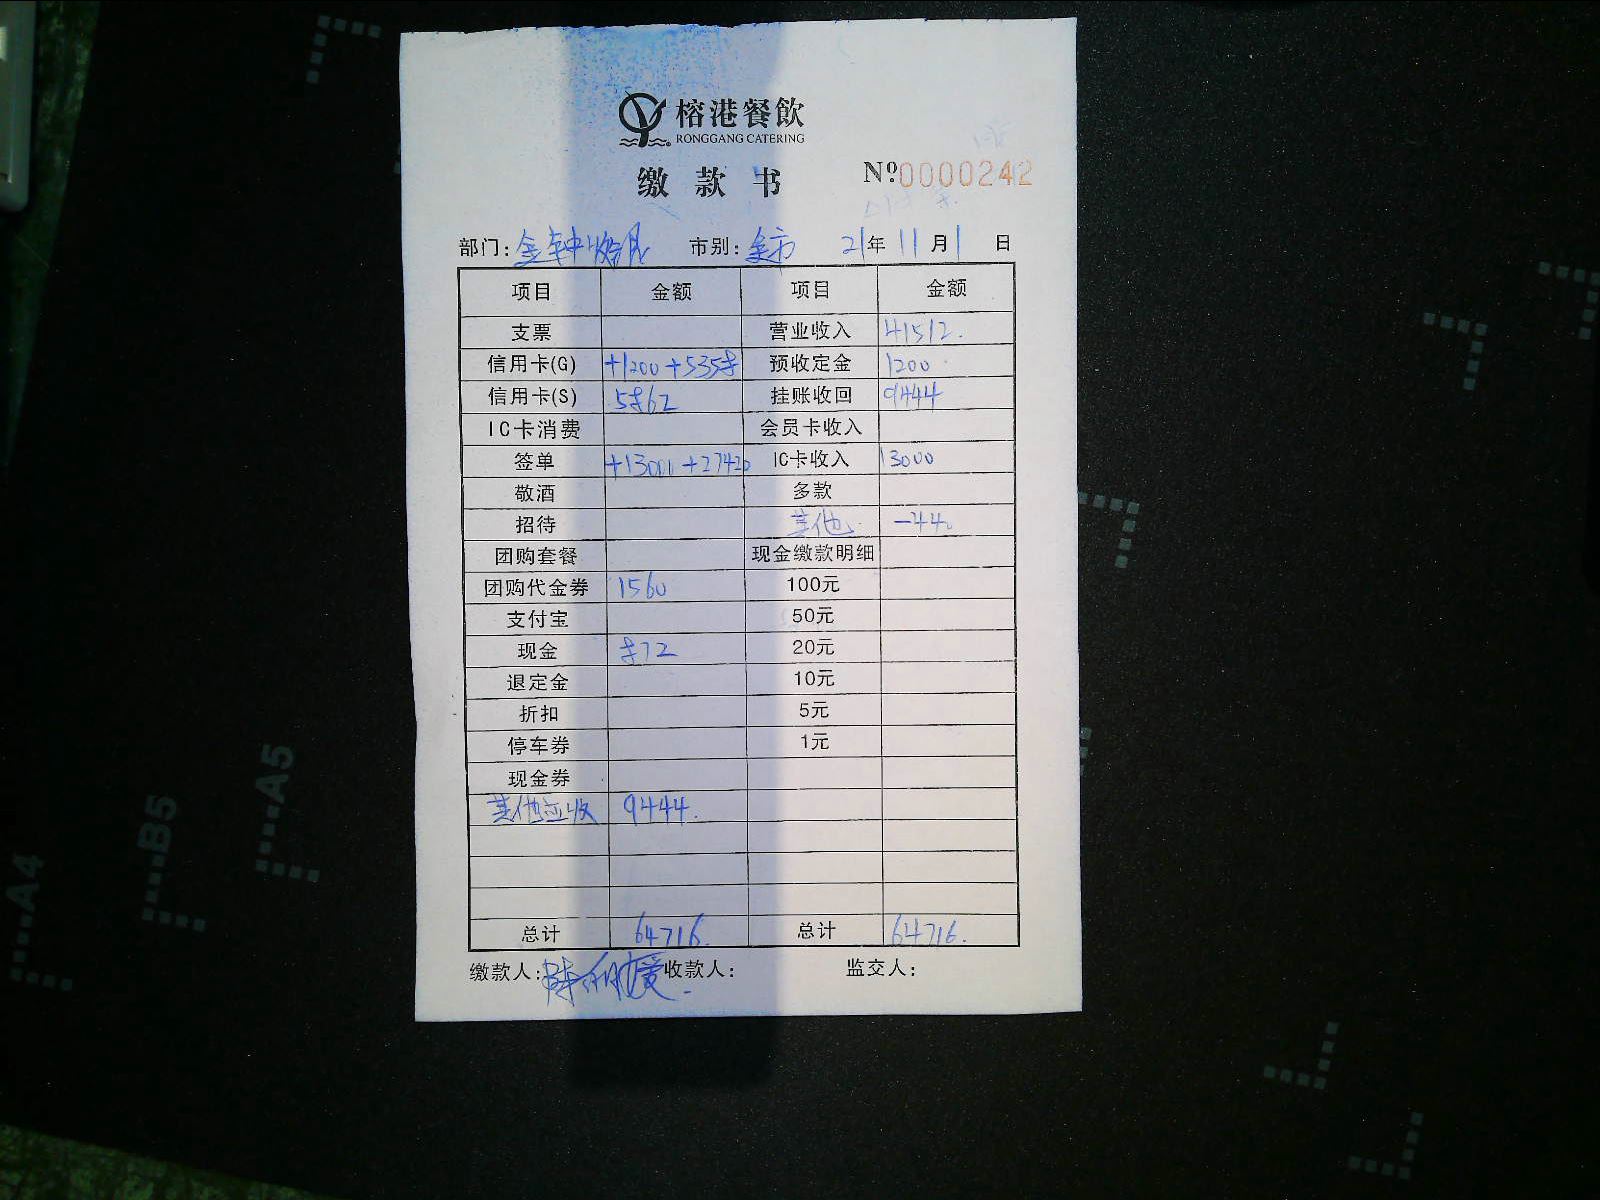 榕港餐飲
RONGGANG CATERING
缴款书 Nº0000242
部门: 金钟收银 市别: 全市 21年11月1日
项目 金额 项目 金额
支票 营业收入 41512.
信用卡(G) +1200+5358 预收定金 1200
信用卡(S) 5862 挂账收回 9444
IC卡消费 会员卡收入
签单 +13000+27420 IC卡收入 13000
敬酒 多款
招待 其他 -440
团购套餐 现金缴款明细
团购代金券 1560 100元
支付宝 50元
现金 872 20元
退定金 10元
折扣 5元
停车券 1元
现金券
其他应收 9444.
总计 64716. 总计 64716.
缴款人: 收款人: 监交人:
A4
B5
A5